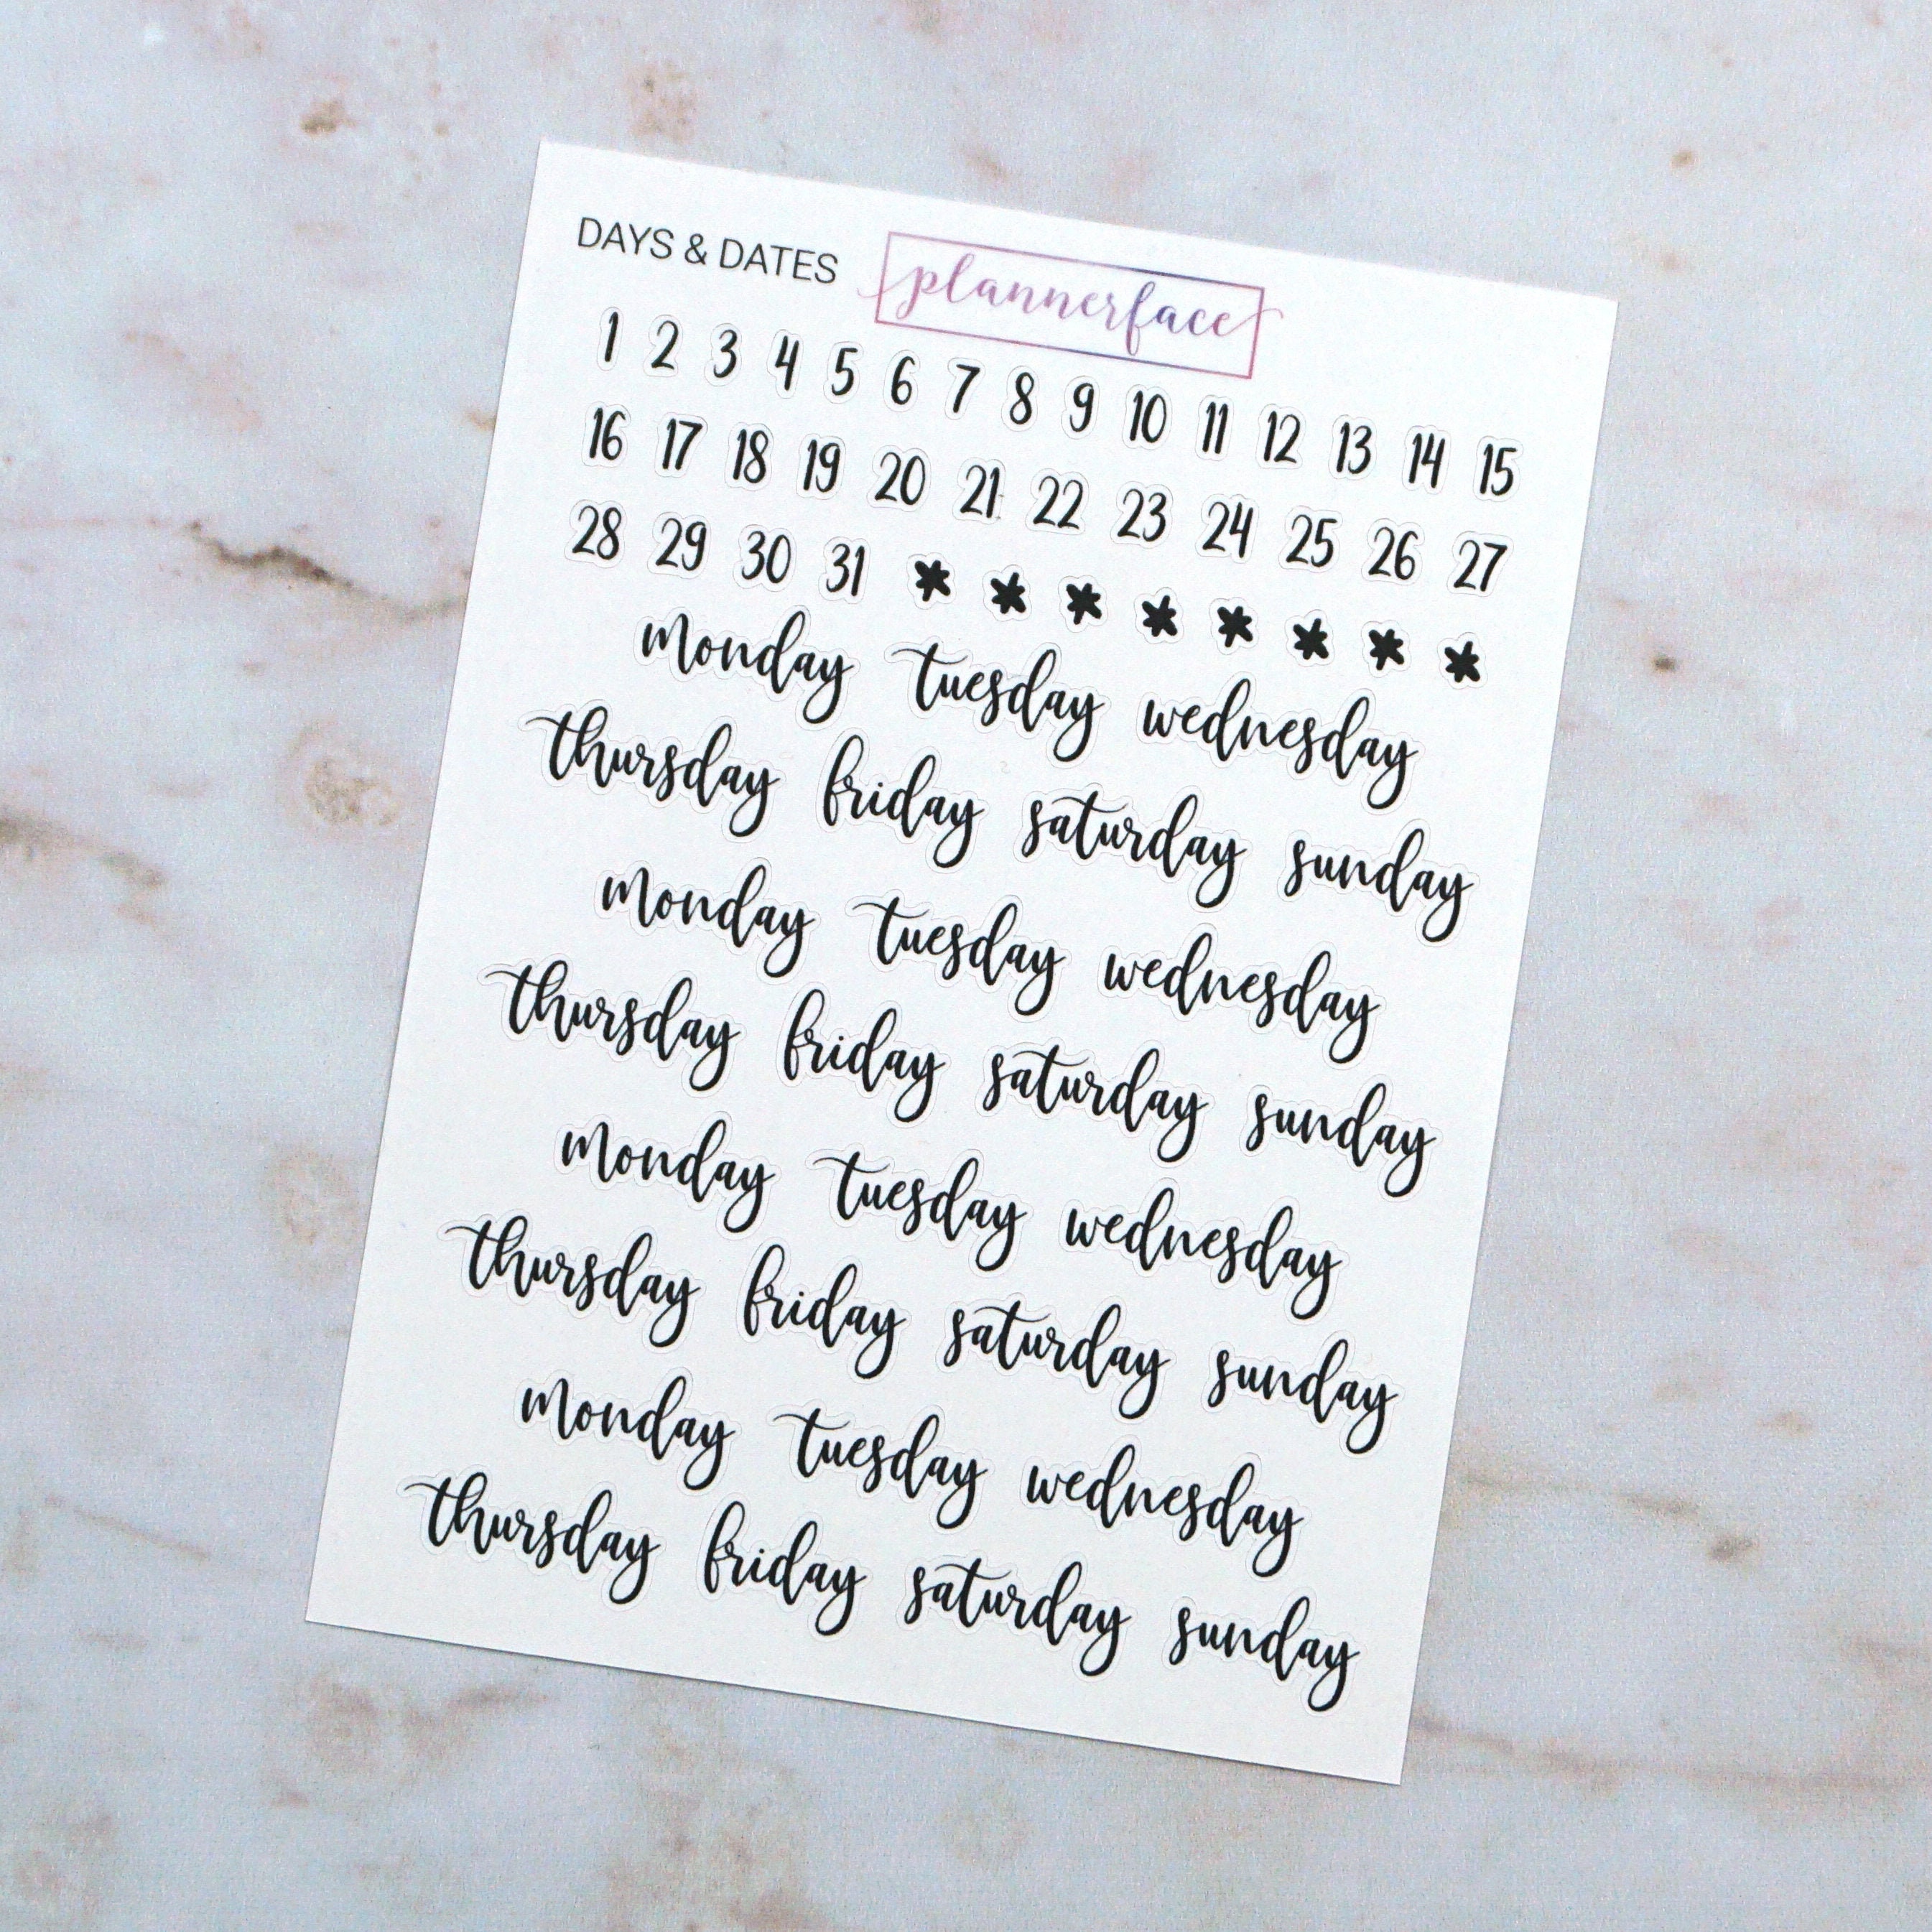 DAYS & DATES plannerface
1 2 3 4 5 6 7 8 9 10 11 12 13 14 15
16 17 18 19 20 21 22 23 24 25 26 27
28 29 30 31 * * * * * * * *
monday tuesday wednesday
thursday friday saturday sunday
monday tuesday wednesday
thursday friday saturday sunday
monday tuesday wednesday
thursday friday saturday sunday
monday tuesday wednesday
thursday friday saturday sunday